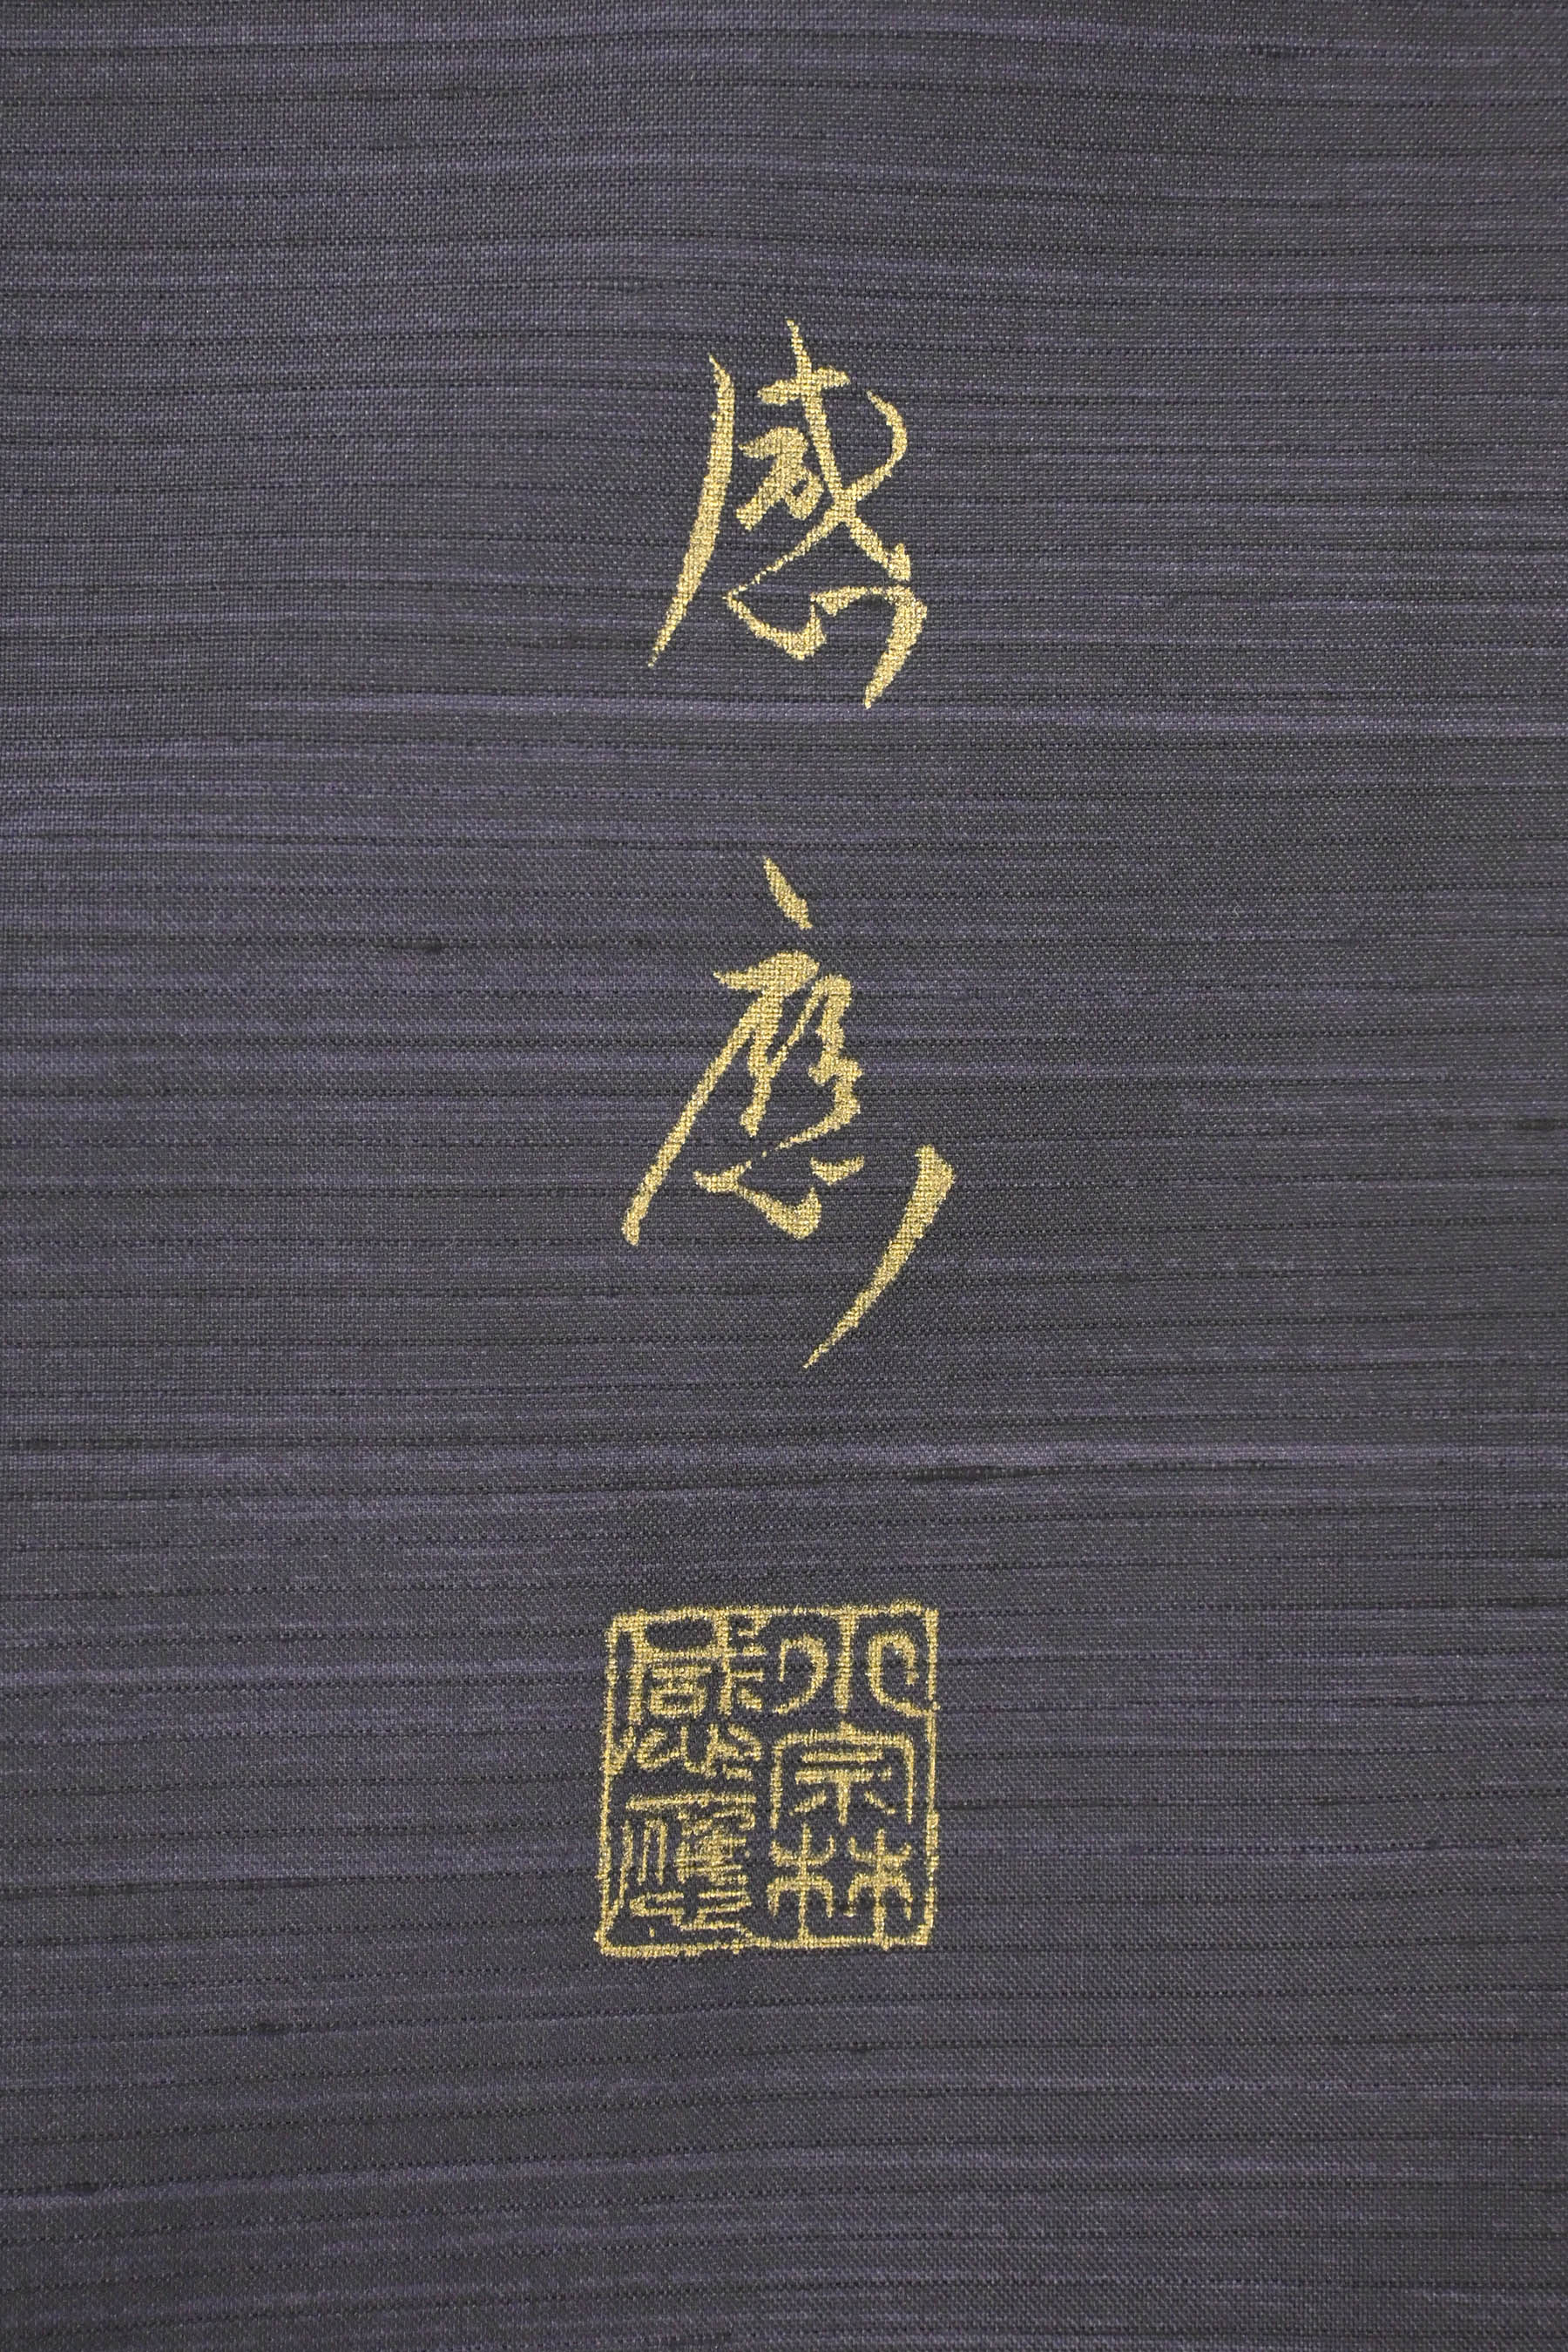 感
應
小宗林
感應